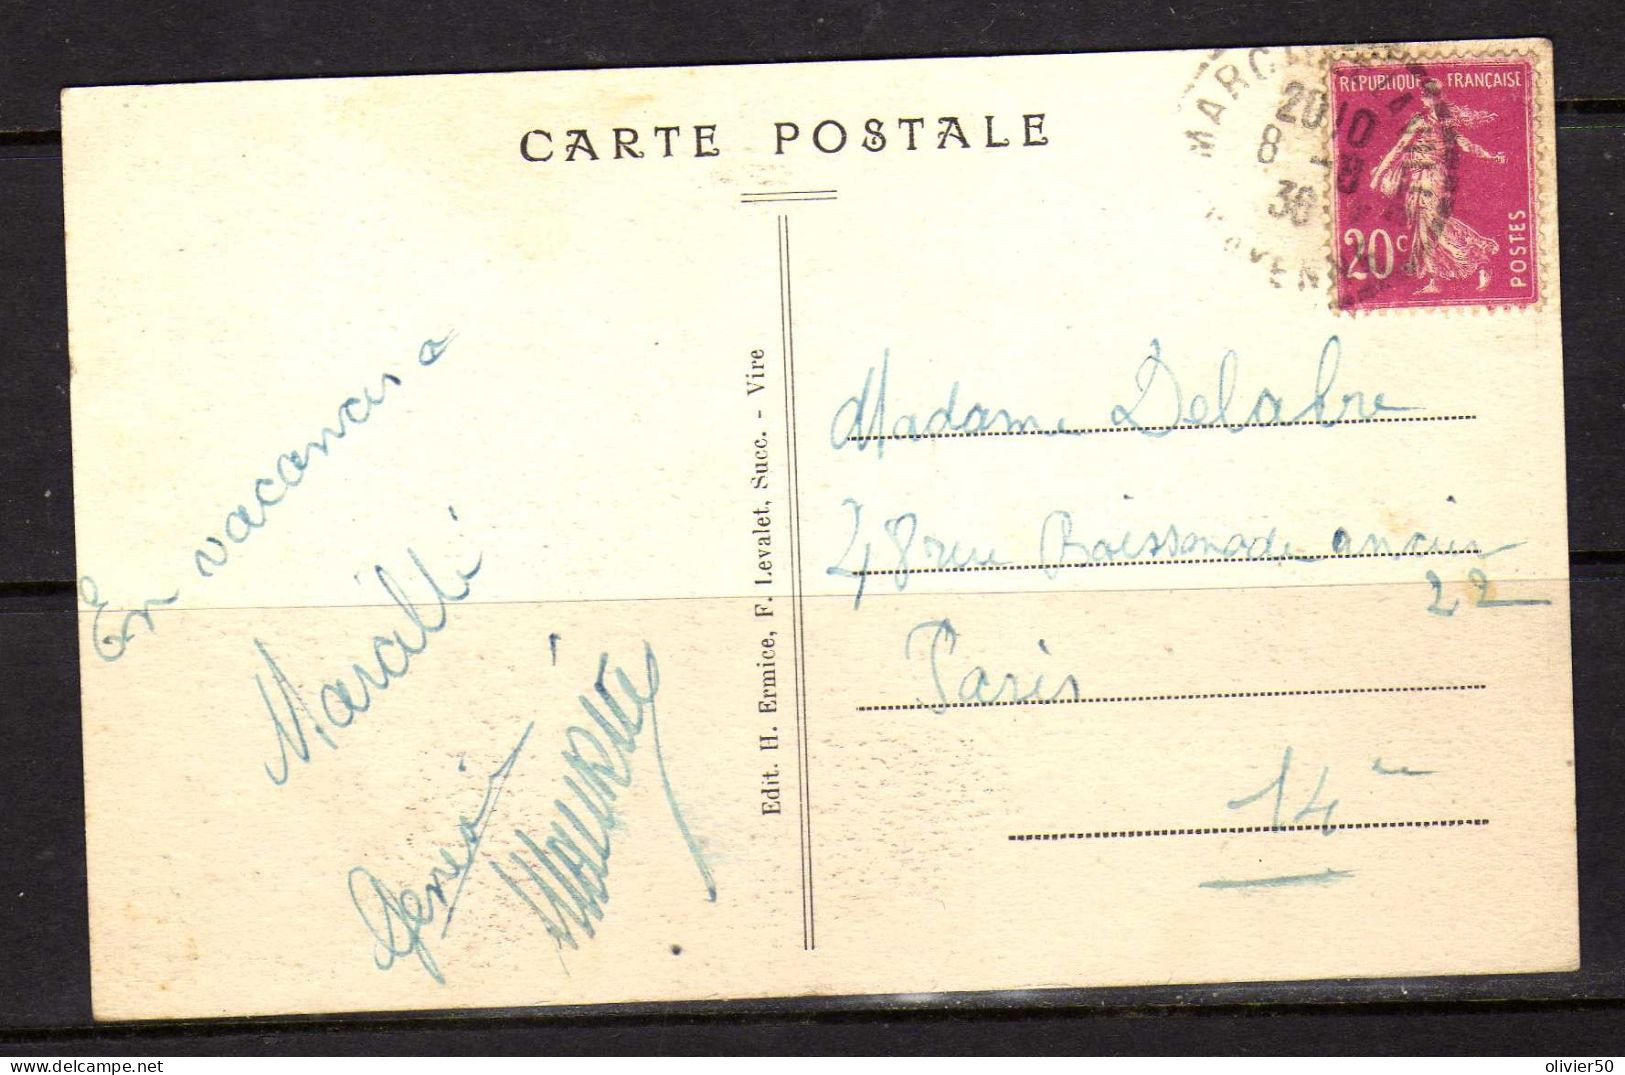 CARTE POSTALE
RÉPUBLIQUE FRANÇAISE
20c
POSTES
20 10
8 -8
36
En vacances a
Marcilli
Maurice
Edit. H. Ermice, F. Levalet, Succ. - Vire
Madame Delabre
48 rue Boissonade ancien
22
Paris
14me
olivier50